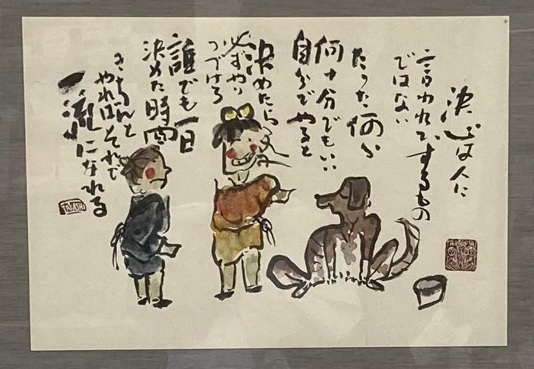 決心は人に
言われてするもの
ではない
たった何分
何十分でもいい
自分でやると
決めたら
必ずやり
つづけろ
誰でも一日
決めた時間
きちんと
やればそれで
一流になれる